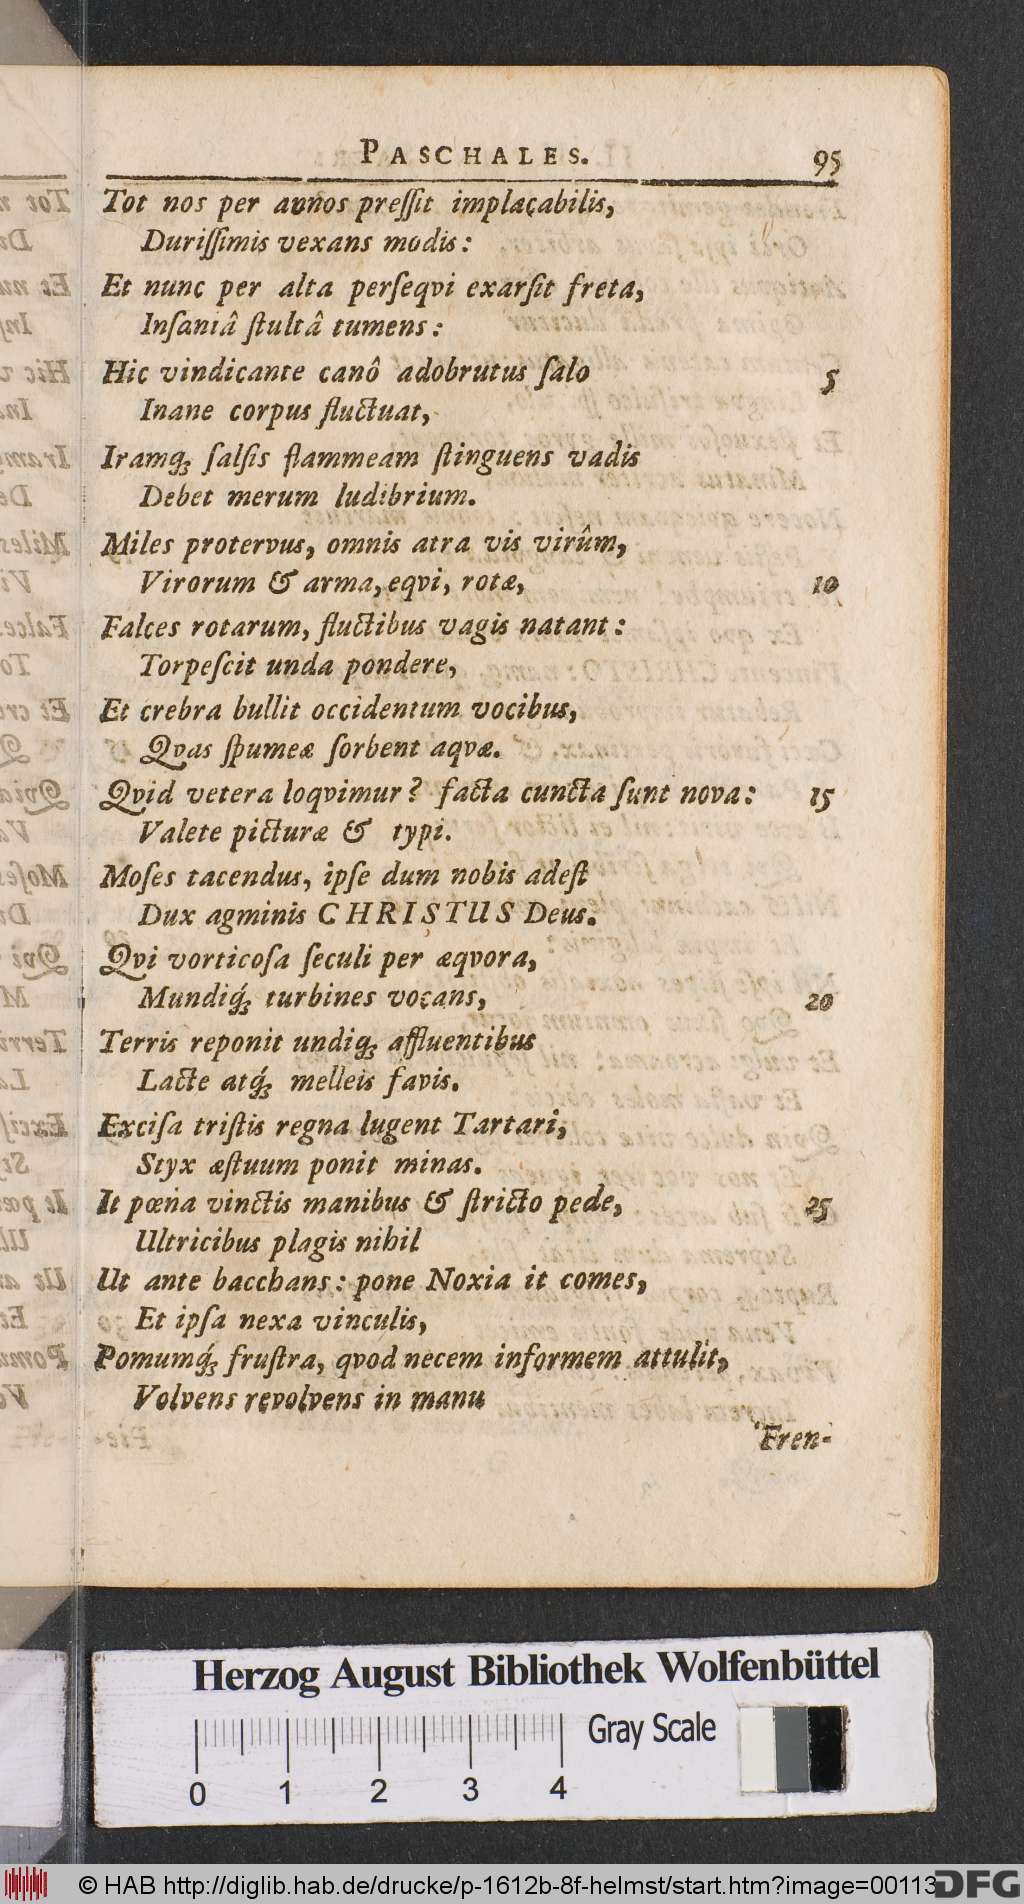 PASCHALES. 95
Tot nos per annos preſſit implacabilis,
Duriſſimis vexans modis:
Et nunc per alta perſeqvi exarſit freta,
Inſaniâ ſtultâ tumens:
Hic vindicante canô adobrutus ſalo 5
Inane corpus fluctuat,
Iramq́; ſalſis flammeam ſtinguens vadis
Debet merum ludibrium.
Miles protervus, omnis atra vis virûm,
Virorum & arma, eqvi, rotæ, 10
Falces rotarum, fluctibus vagis natant:
Torpeſcit unda pondere,
Et crebra bullit occidentum vocibus,
Qvas ſpumeæ ſorbent aqvæ.
Qvid vetera loqvimur? facta cuncta ſunt nova: 15
Valete picturæ & typi.
Moſes tacendus, ipſe dum nobis adeſt
Dux agminis CHRISTUS Deus.
Qvi vorticoſa ſeculi per æqvora,
Mundiq́; turbines vocans, 20
Terris reponit undiq; affluentibus
Lacte atq́; melleis favis.
Exciſa triſtis regna lugent Tartari,
Styx æſtuum ponit minas.
It pœna vinctis manibus & ſtricto pede, 25
Ultricibus plagis nihil
Ut ante bacchans: pone Noxia it comes,
Et ipſa nexa vinculis,
Pomumq́; fruſtra, qvod necem informem attulit,
Volvens revolvens in manu
Fren-
Herzog August Bibliothek Wolfenbüttel
Gray Scale
0 1 2 3 4
© HAB http://diglib.hab.de/drucke/p-1612b-8f-helmst/start.htm?image=00113
DFG